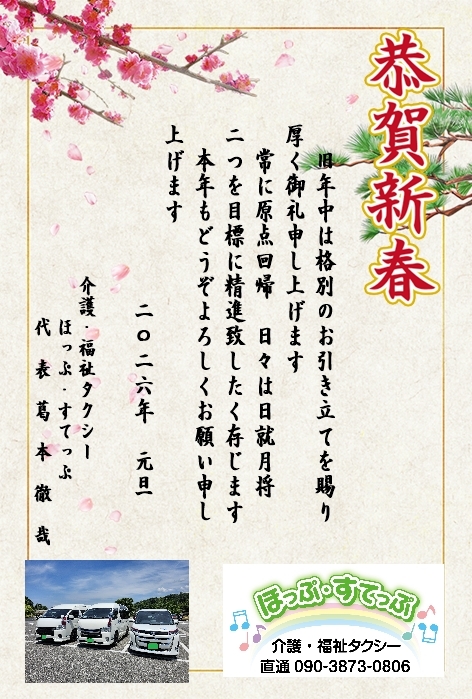 恭賀新春
旧年中は格別のお引き立てを賜り
厚く御礼申し上げます
常に原点回帰　日々は日就月将
二つを目標に精進致したく存じます
本年もどうぞよろしくお願い申し
上げます
二〇二六年　元旦
介護・福祉タクシー
ほっぷ・すてっぷ
代表 葛本徹哉
ほっぷ・すてっぷ
介護・福祉タクシー
直通 090-3873-0806